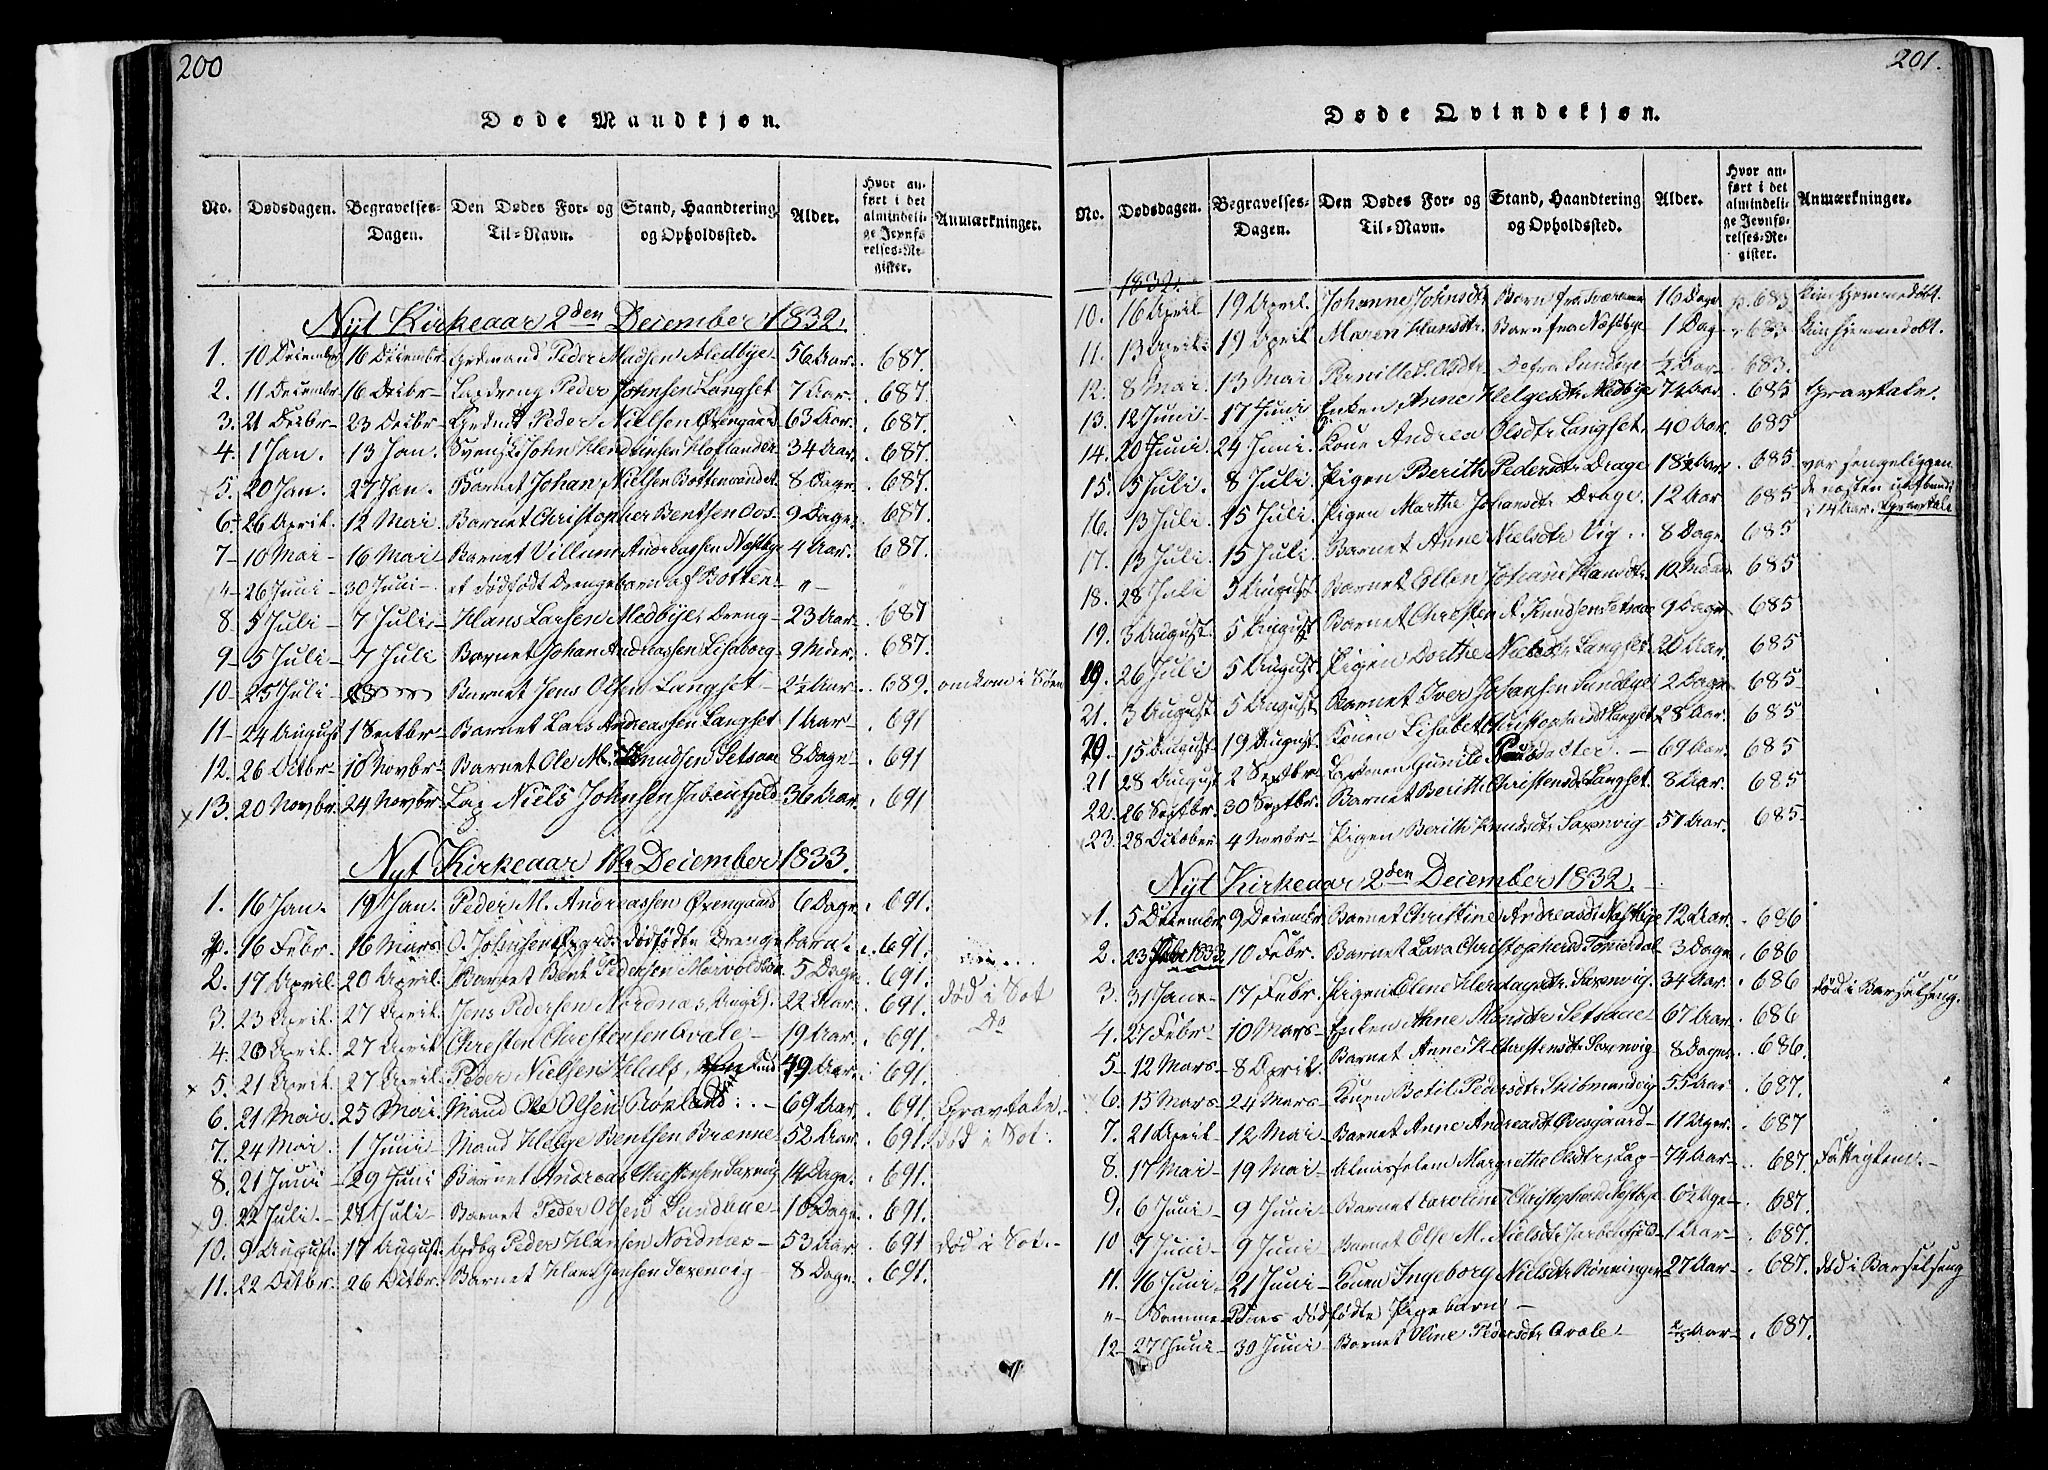 200
Døde Mandkjøn.
No. Dødsdagen. Begravelses-Dagen. Den Dødes For- og Til-Navn. Stand, Haandtering og Opholdssted. Alder. Hvor anført i det almindelige Jevnførelses-Register. Anmærkninger.
Nyt Kirkeaar 2den December 1832.
1. 10 December 16 Decembr Peder Madsen Medbye 56 Aar. 687.
2. 11 Decembr 16 Decbr Peder Johnsen Langset 7 Aar. 687.
3. 21 Decbr 23 Decbr Peder Nielsen Øvengaard 63 Aar. 687.
4. 1 Jan. 13 Jan. John Hendriksen 34 Aar. 687.
5. 20 Jan. 27 Jan. Barnet Johan Nielsen Bottenvandet 8 Dage 687.
6. 26 April. 12 Mai Barnet Christopher Bentsen 9 Dage 687.
7 10 Mai 16 Mai Barnet Villum Andreassen Næstbye 4 Aar. 687.
" 26 Juni 30 Juni et dødfødt Drengebarn af Botten "
8 5 Juli 7 Juli. Hans Larsen Medbye, Dreng 23 Aar 687
9 5 Juli 7 Juli Barnet Johan Andreassen 9 Mdr. 687.
10 25 Juli Barnet Jens Olsen Langset 2½ Aar 689. omkom i Søen
11 24 August 1 Septbr Barnet Lars Andreassen Langset 1 Aar 691
12. 26 Octbr 10 Novbr Barnet Ole M. Knudsen Setsaae 8 Dage 691
13. 20 Novbr. 24 Novbr Lap Niels Johnsen 36 Aar. 691
Nyt Kirkeaar 1ste December 1833.
1. 16 Jan. 19 Jan. Peder M. Andreassen Øvengaard 6 Dage 691.
16 Febr. 16 Mars O. Johnsens dødfødte Drengebarn 691.
2. 17 April 20 April. Barnet Bent Pedersen 5 Dage 691.
3. 23 April. 27 April. Jens Pedersen Nordnæs, 22 Aar. 691. død i Sot
4. 20 April. 27 April Christen Christensen Qvale 19 Aar. 691. Do
5. 21 April. 27 April. Peder Nielsen 49 Aar. 691.
6. 21 Mai 25 Mai. Mand Ole Olsen 69 Aar. 691. Gravtale.
7. 24 Mai. 1 Juni Mand Helge Bentsen Brænne 52 Aar. 691. død i Sot.
8. 21 Juni 29 Juni Barnet Andreas Christensen Saxenvig 14 Dage. 691.
9. 22 Juli. 27 Juli Barnet Peder Olsen 10 Dage 691.
10. 9 August. 17 August. Peder Hansen Nordnæs 53 Aar. 691 død i Sot.
11. 22 Octbr. 26 Octbr. Barnet Hans Jensen Saxenvig 8 Dage 691.
201.
Døde Qvindekjøn.
No. Dødsdagen. Begravelses-Dagen. Den Dødes For- og Til-Navn. Stand, Haandtering og Opholdssted. Alder. Hvor anført i det almindelige Jevnførelses-Register. Anmærkninger.
1832.
10. 16 April 19 April. Johanne Johnsdtr Barn fra 16 Dage 683. kun hjemmedøbt.
11. 13 April 19 April Maren Hansdtr. Barn fra Næstbye 1 Dag 683 kun hjemmedøbt.
12. 8 Mai 13 Mai Pernille Olsdtr. Do fra Sundbye ½ Aar 683.
13. 12 Juni 17 Juni Enken Anne Helgesdtr Medbye 74 Aar. 685 Gravtale.
14. 20 Juni 24 Juni. Kone Andrea Olsdtr Langset. 40 Aar. 685
15. 5 Juli. 8 Juli. Pigen Berith Pedersdtr Drage 18½ Aar. 685 var sengeliggen
de næsten
16. 13 Juli 15 Juli. Pigen Marthe Johansdtr Drage 12 Aar. 685 i 14 Aar. Gravtale
17. 13 Juli 15 Juli. Barnet Anne Nielsdtr Vig 8 Dage 685
18. 28 Juli 5 August Barnet Ellen Johanne Hansdtr. 10 Maan. 685
19. 3 August. 5 August. Barnet Christen Knudsen Setsaae 9 Dage 685
19. 26 Juli 5 August. Pigen Dorthe Nielsdtr. Langset 20 Aar. 685
21. 3 August 5 August Barnet Iver Johansen Sundbye 2 Dage 685
20. 15 August 19 August. Konen Lisabet Christophersdtr Langset 28 Aar. 685
21 28 August 2 Septbr. Gunild Poulsdatter. 69 Aar. 685
22. 26 Septbr. 30 Septbr. Barnet Berith Christensdtr Langset. 8 Aar. 685
23. 28 October 4 Novbr Pigen Berith Knudsdtr Saxenvig 57 Aar. 685.
Nyt Kirkeaar 2den December 1832.
1. 5 December 9 Decembr. Barnet Christine Andreasdtr Næstbye 12 Aar. 686
2. 23 1833 10 Febr. Barnet Lava Christophersd 3 Dage 686
3. 31 Jan. 17 Febr. Pigen Elene Saxenvig. 34 Aar. 686 død i Barselseng.
4. 27 Febr 10 Mars Enken Anne Monsdtr Setsaae 67 Aar. 686
5 12 Mars 8 April. Barnet Anne Christensdtr Saxenvig 8 Dage. 686.
6. 15 Mars 24 Mars Konen Botil Pedersdtr 55 Aar 687.
7. 21 April 12 Mai Barnet Anne Andreasdtr Øvregaard 11 Uger. 687
8. 17 Mai 19 Mai Margrethe Olsdtr, Lap 74 Aar 687. Fattiglem.
9. 6 Juni 9 Juni Barnet Caroline Christophersd Næstbye 6½ Uge 687.
10 7 Juni 9 Juni Barnet Else M. Nielsdtr 1 Aar 687.
11. 16 Juni 21 Juni Konen Ingeborg Nielsdtr Rønningen 27 Aar 687. død i Barselseng
" Samme Kones dødfødte Pigebarn
12 27 Juni 30 Juni Barnet Oline Pedersdtr Qvale Aar 687.